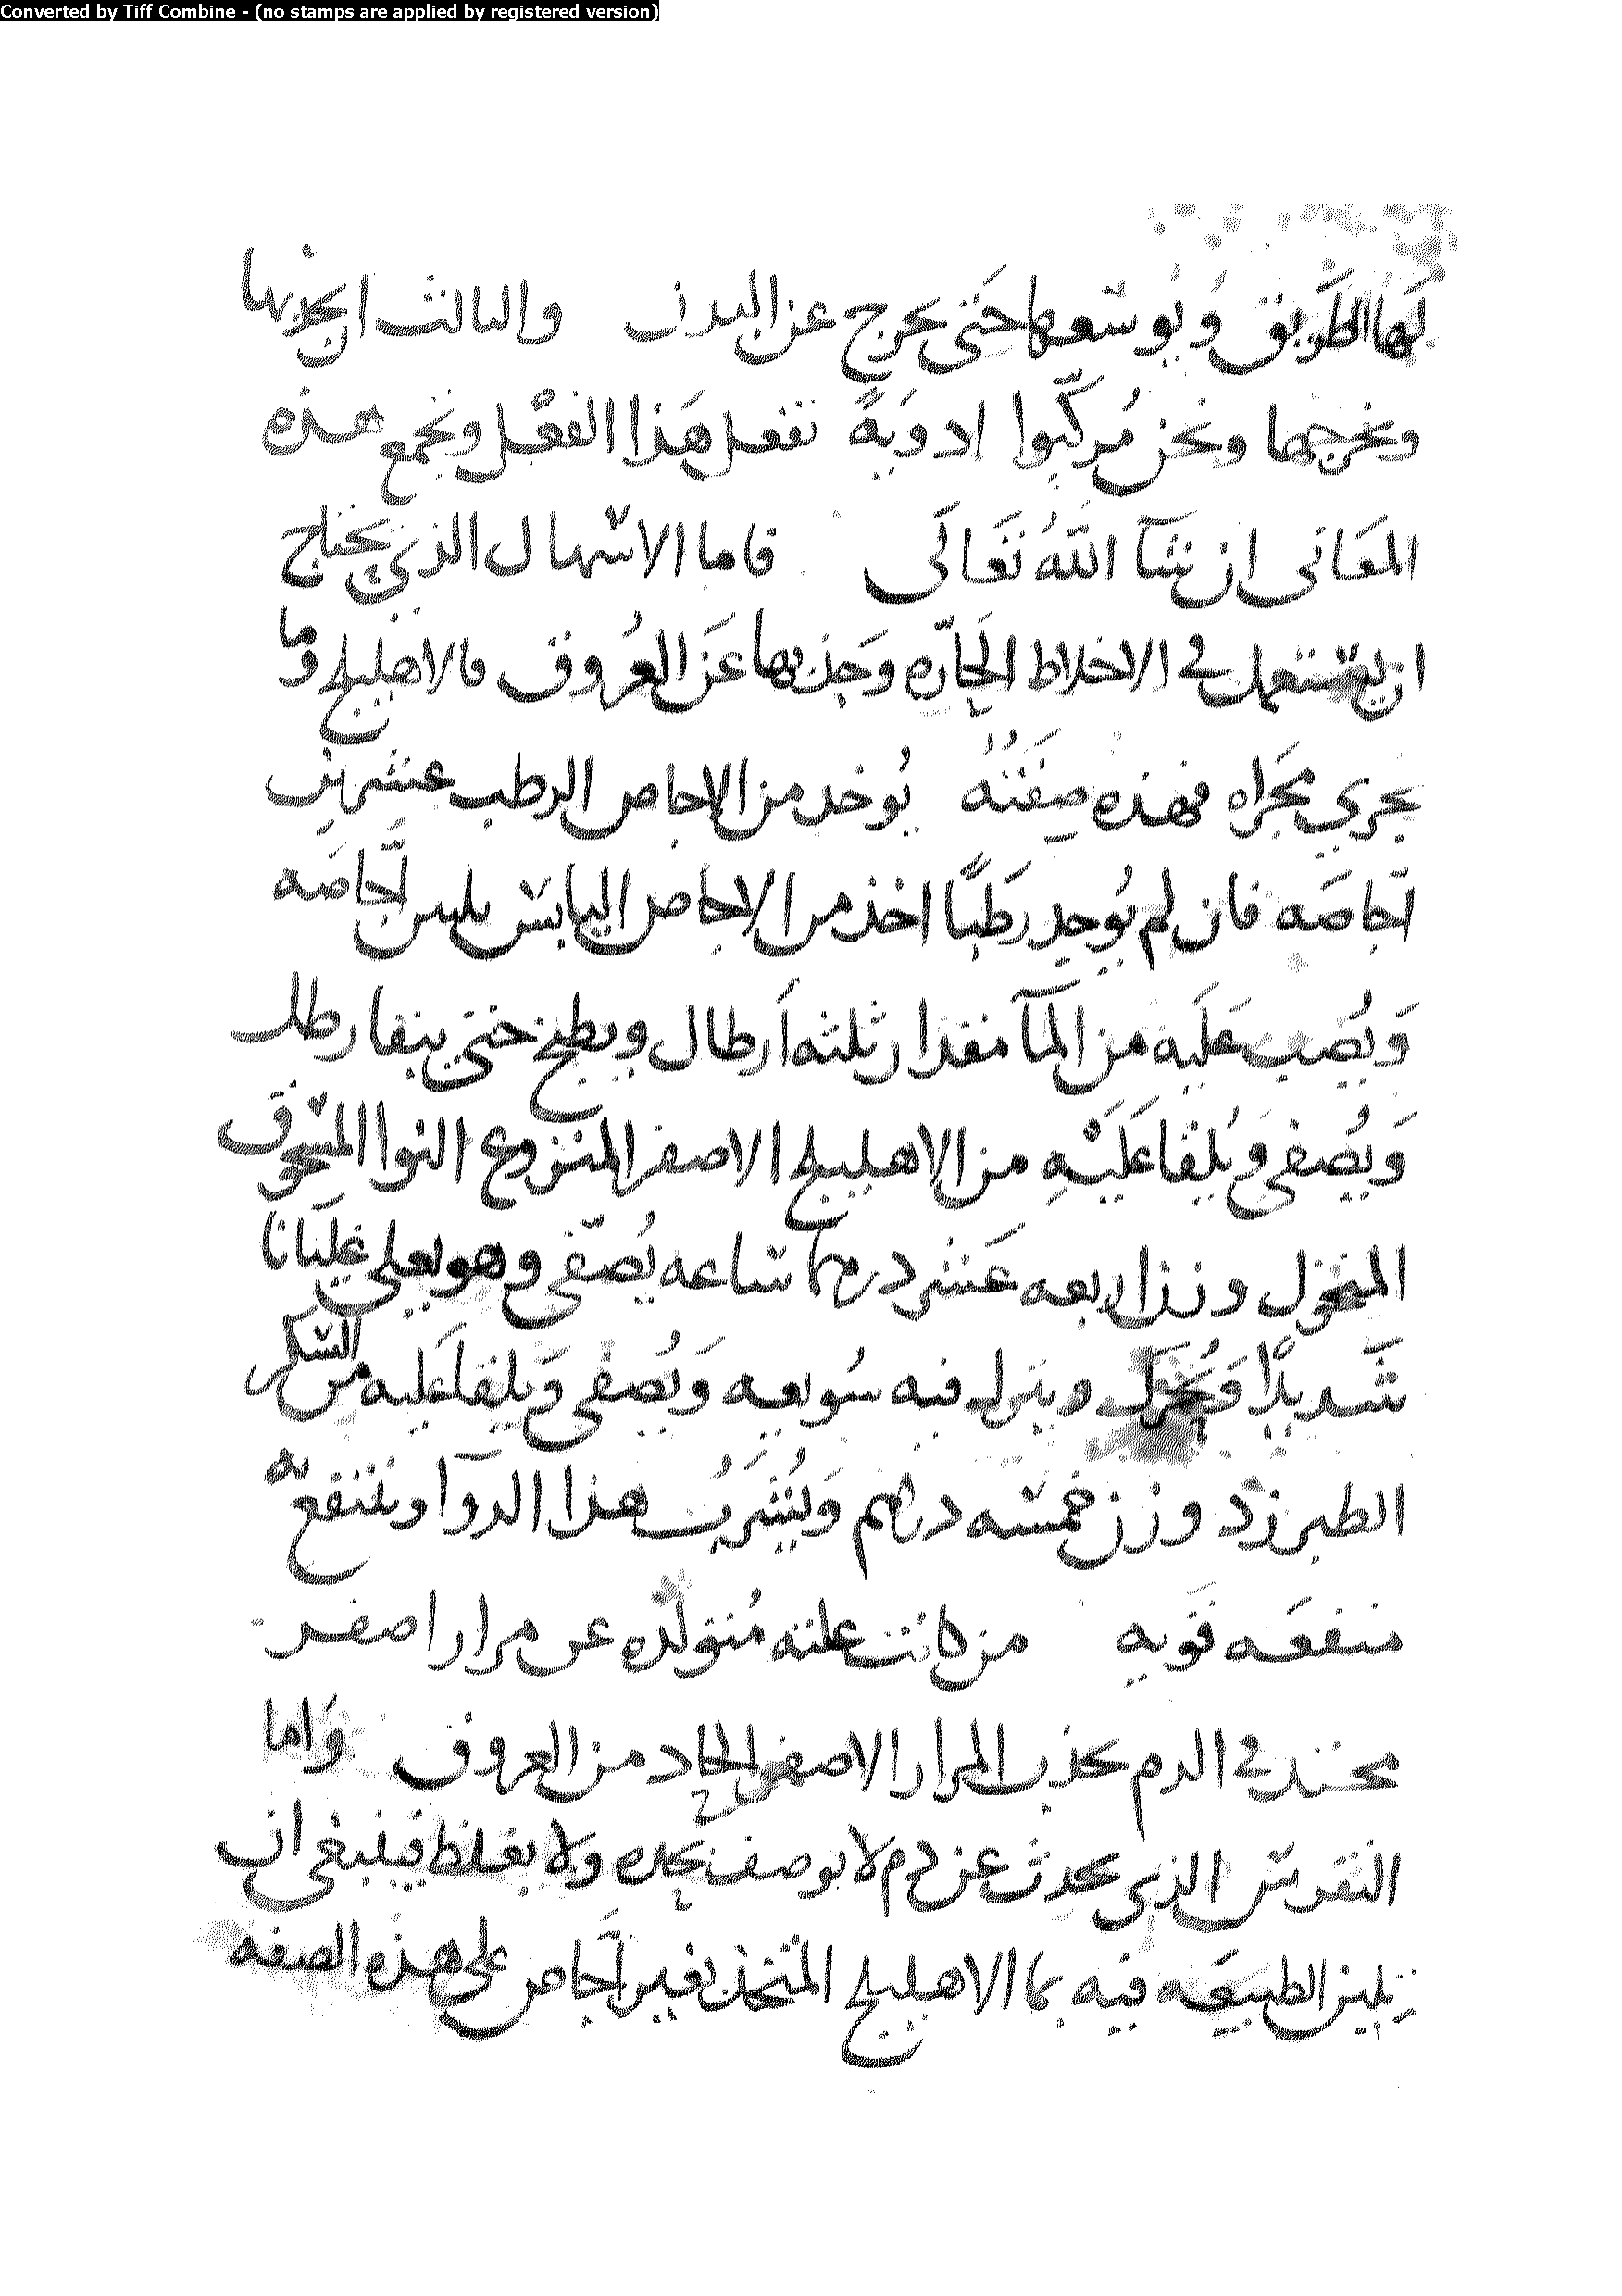 Converted by Tiff Combine - (no stamps are applied by registered version)
لَها الطَّريق وَيُوسّعها حَتى يخرج عن البدن والثالث ان يجذبها
ويخرجها ونحن مُركّبوا ادويَةً تفعل هَذا الفعل وتجمع هذه
المعَانى ان شآ اللّهُ تَعَالَى فاما الاسهال الذي يحتاج
ان يستعمل في الاخلاط الحَارّه وَجذبها عَن العُروق فالاهليلج وما
يجري مجَراه فهذه صِفَتُهُ يُوخذ من الاجاص الرطب عشرين
اجاصَه فان لم يُوجد رَطبًا اخذ من الاجاص اليابس ثلثين اجَّاصَه
وَيُصب عَلَيه من المآ مقدار ثلثه اَرطال ويطبخ حتى يبقا رطل
وَيُصفى وَيُلقا عَلَيْهِ من الاهليلج الاصفر المنزوع النوا المسحوق
المنخول وزن اربعه عَشر درهما ساعه يُصَفّى وهو يغلي غلَيَانا
شَديدًا وَيُحَرك وينزل فيه سُويعه وَيُصفى وَيلقا عَليه من السّكر
الطبرزذ وزن خمسه دراهم وَيُشرَبُ هذا الدوآ وينتفع به
منفعَه قويه من كانت علته مُتولّده عن مرار اصفر
محتد في الدم يجذب المرار الاصفر الحاد من العروق وَاما
النقرس الذي يحدث عن دم لا يوصف بحده ولا بغلظ فينبغي ان
يلين الطبيعَه فيه بما الاهليلج المتخذ بغير اجَّاص على هذه الصفه